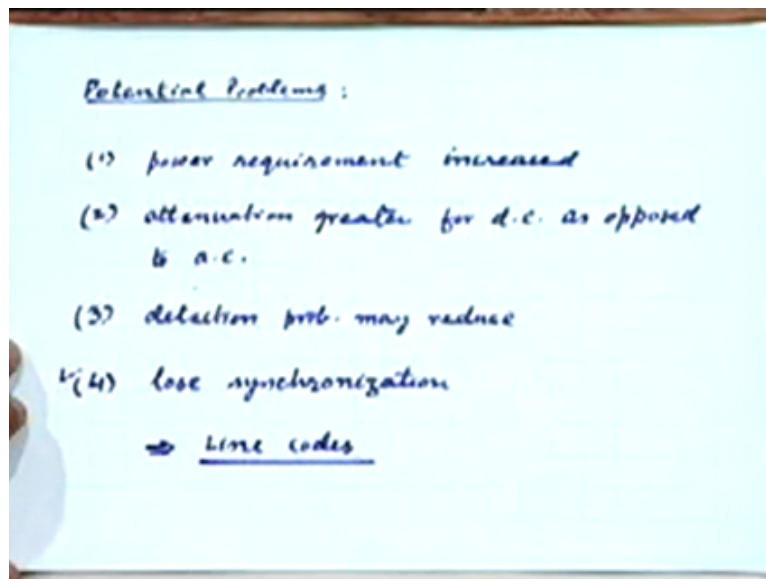 Potential Problems :
(1) power requirement increased
(2) attenuation greater for d.c. as opposed
to a.c.
(3) detection prob. may reduce
✓(4) lose synchronization
⇒ Line codes